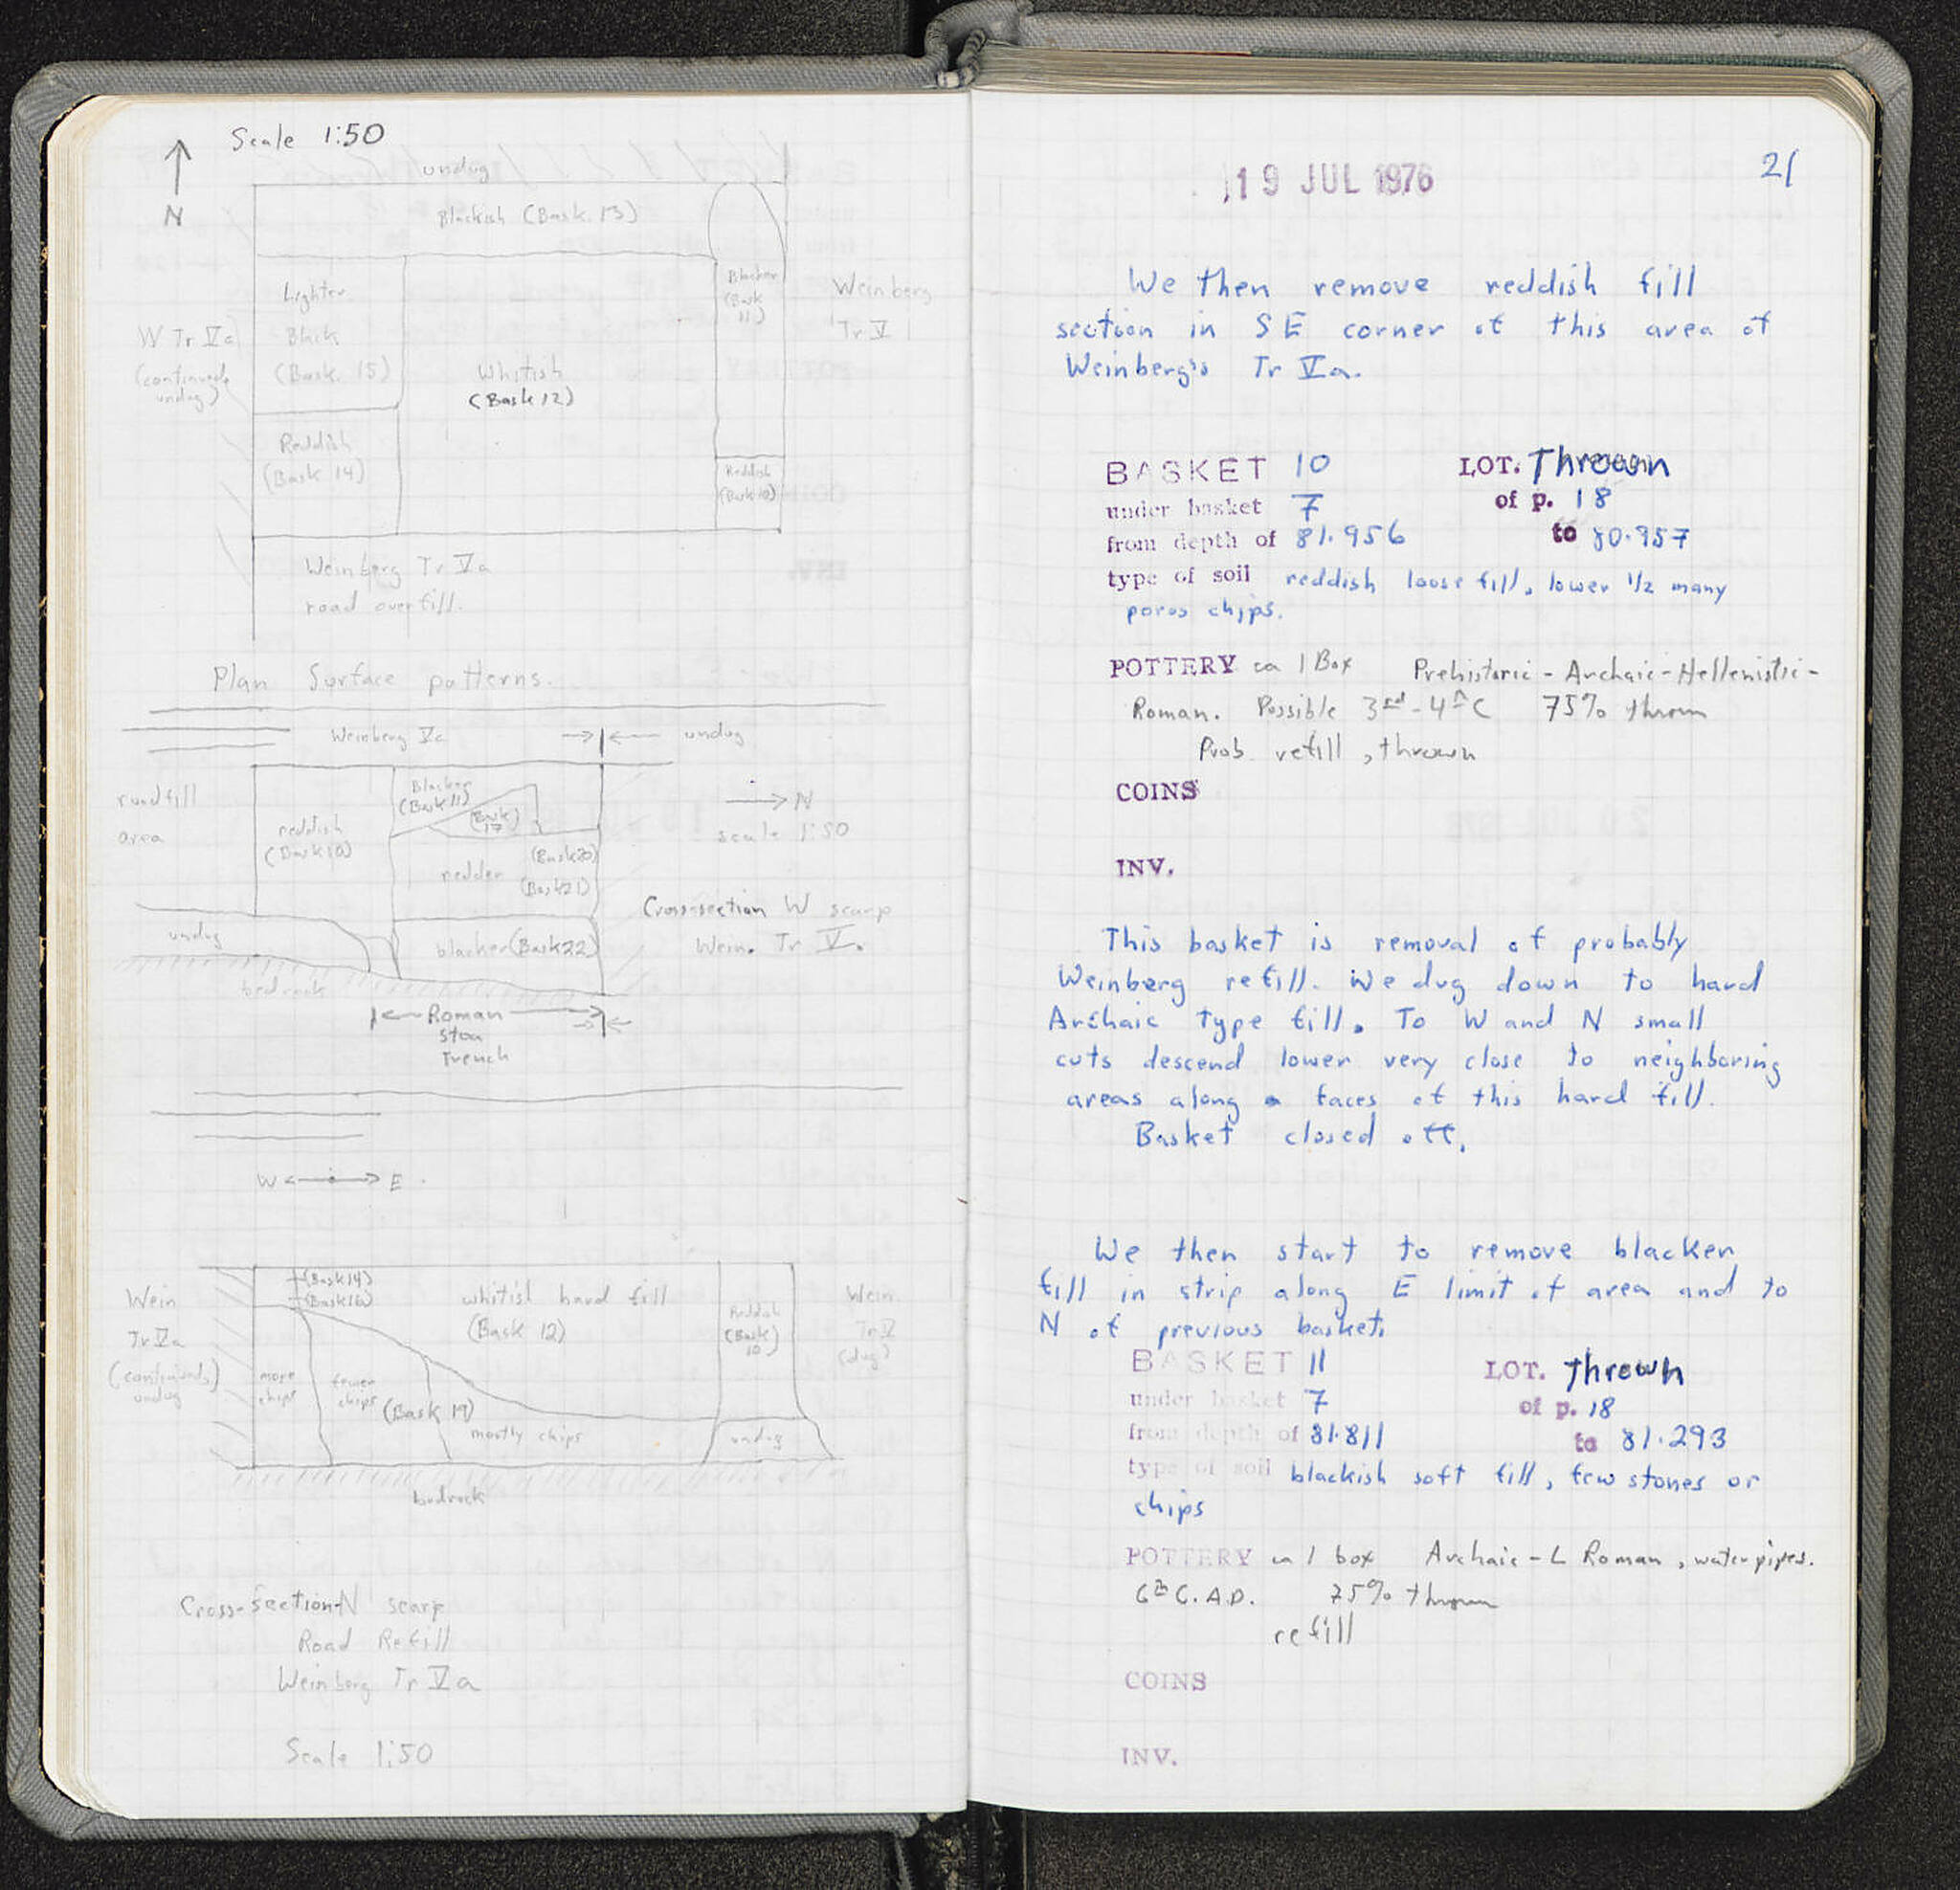 Scale 1:50
N
undug
Blackish (Bask. 13)
Lighter
Black
(Bask. 15)
Blacker
(Bask
11)
Weinberg
Tr V
W Tr Va
(continued,
undug)
Whitish
(Bask 12)
Reddish
(Bask 14)
Reddish
(Bask 10)
Weinberg Tr Va
road over fill.
Plan Surface patterns.
Weinberg Va
undug
road fill
area
Blacker
(Bask 11)
(Bask
17)
N
scale 1:50
reddish
(Bask 10)
(Bask 20)
redder
(Bask 21)
Cross-section W scarp
Wein. Tr V.
undug
blacker (Bask 22)
bedrock
Roman
stoa
Trench
W E
(Bask 14)
(Bask 16)
Wein
Tr Va
(continued,)
undug
whitish hard fill
(Bask 12)
Reddish
(Bask)
10
Wein.
Tr V
(dug)
more
chips
fewer
chips
(Bask 19)
mostly chips
undug
bedrock
Cross-section-N scarp
Road Refill
Weinberg Tr Va
Scale 1:50
19 JUL 1976
21
We then remove reddish fill
section in SE corner of this area of
Weinberg's Tr Va.
BASKET 10 LOT. Thrown
under basket 7 of p. 18
from depth of 81.956 to 80.957
type of soil reddish loose fill, lower 1/2 many
poros chips.
POTTERY ca 1 Box Prehistoric - Archaic - Hellenistic -
Roman. Possible 3rd - 4th C 75% thrown
Prob. refill, thrown
COINS
INV.
This basket is removal of probably
Weinberg refill. We dug down to hard
Archaic type fill. To W and N small
cuts descend lower very close to neighboring
areas along faces of this hard fill.
Basket closed off.
We then start to remove blacker
fill in strip along E limit of area and to
N of previous basket.
BASKET 11 LOT. thrown
under basket 7 of p. 18
from depth of 81.811 to 81.293
type of soil blackish soft fill, few stones or
chips
POTTERY ca 1 box Archaic - L Roman, water pipes.
6th C. A.D. 75% thrown
refill
COINS
INV.